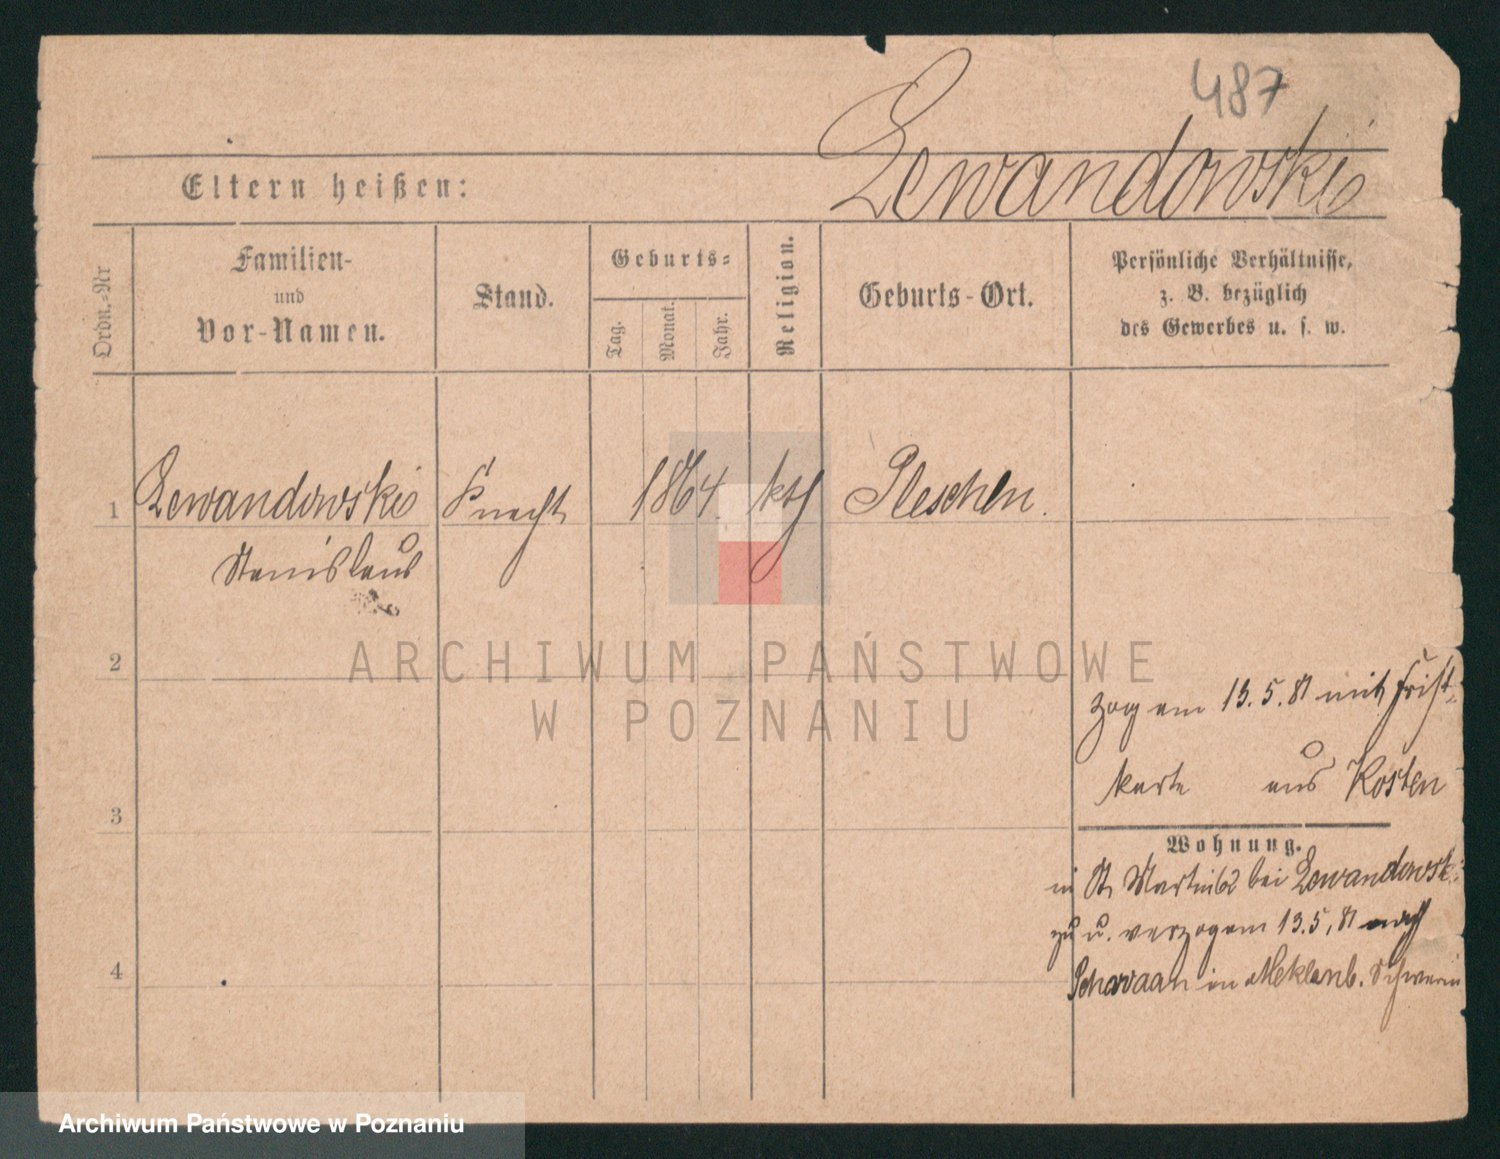 487
Lewandowski
Eltern heißen:
Ordn.-Nr
Familien-
und
Vor-Namen.
Stand.
Geburts-
Tag.
Monat.
Jahr.
Religion.
Geburts-Ort.
Persönliche Verhältnisse,
z. B. bezüglich
des Gewerbes u. s. w.
1 Lewandowski Knecht 1864 kth Pleschen.
Stanislaus
2
ARCHIWUM PAŃSTWOWE
W POZNANIU
zog am 13.5.81 mit Frist-
karte aus Kosten
3
Wohnung.
in St. Martin 62 bei Lewandowski
zu u. verzog am 13.5.81 nach
in Meklenb. Schwerin
4
Archiwum Państwowe w Poznaniu